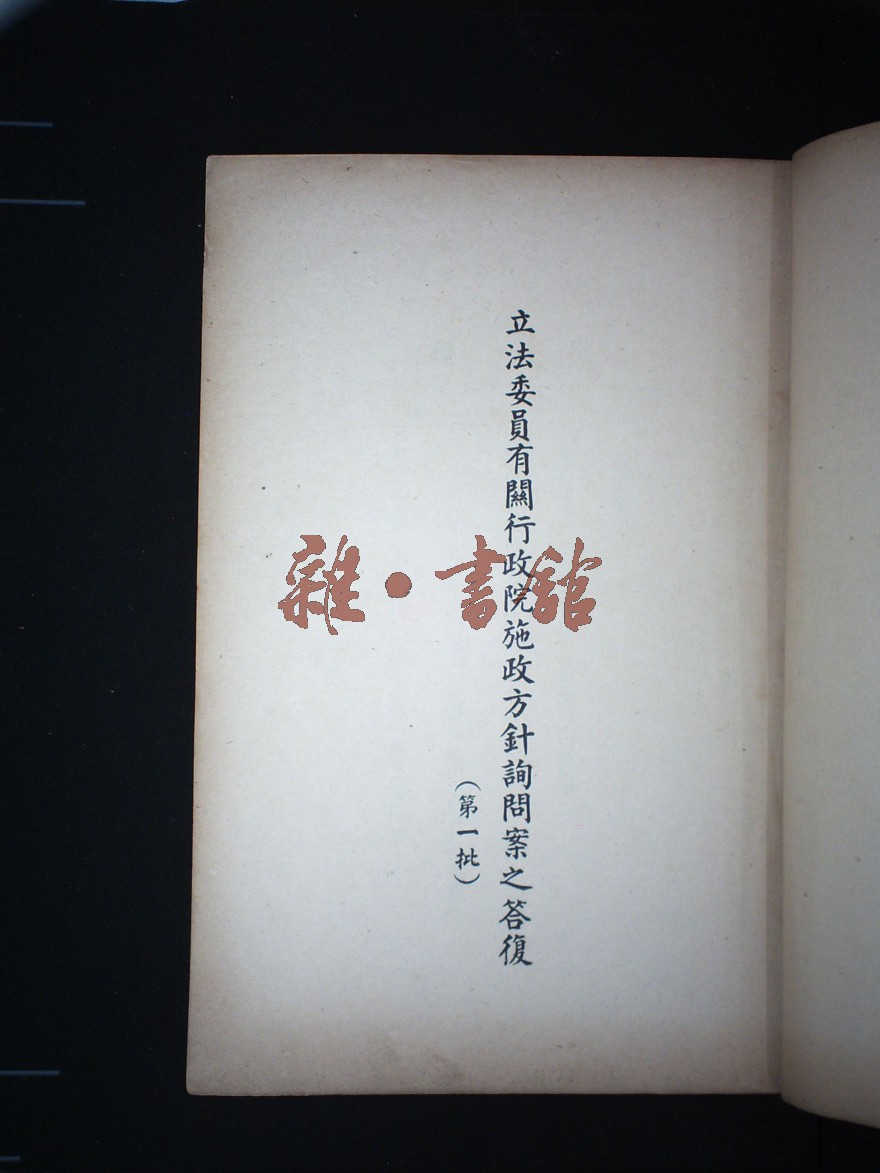 立法委員有關行政院施政方針詢問案之答復
（第一批）
雜·書舘